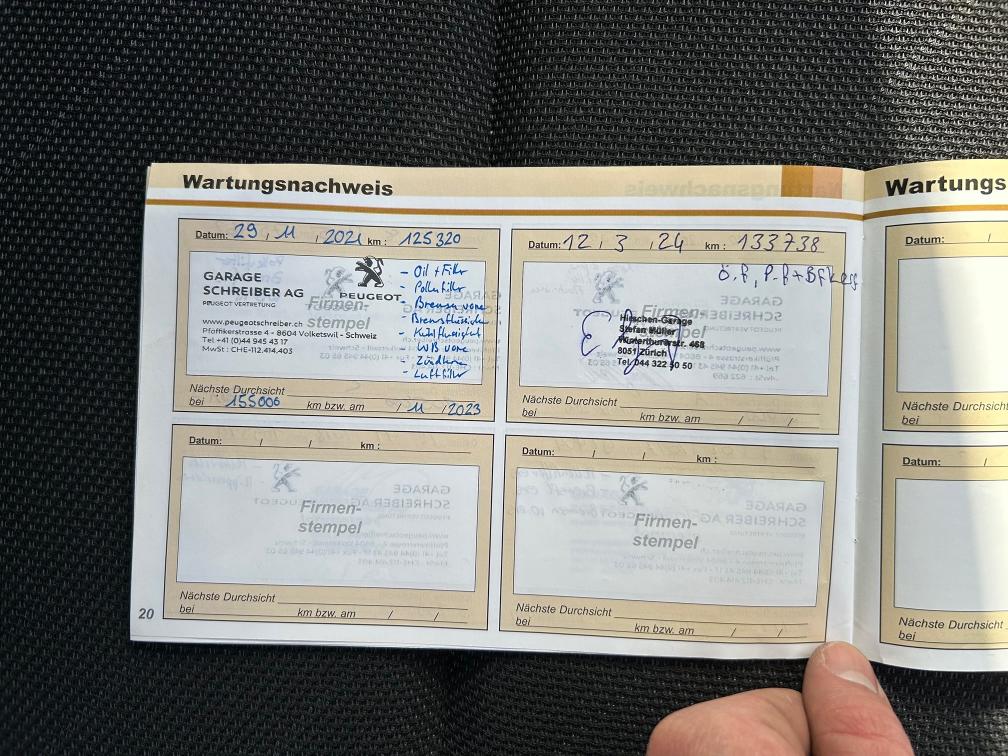 Wartungsnachweis
Datum: 29 / 11 / 2021 km : 125320
GARAGE
SCHREIBER AG
PEUGEOT VERTRETUNG
PEUGEOT
Firmen-
stempel
www.peugeotschreiber.ch
Pfäffikerstrasse 4 - 8604 Volketswil - Schweiz
Tel +41 (0)44 945 43 17
MwSt : CHE-112.414.403
- Oil + Filter
- Pollenfilter
- Bremsen vorne
- Bremsflüssigkeit
- Kühlflüssigkeit
- WB vorne
- Luftfilter
Nächste Durchsicht
bei 155000 km bzw. am / 11 / 2023
Datum: 12 / 3 / 24 km : 133738
Firmen-
stempel
Hirschen-Garage
Stefan Müller
Winterthurerstr. 468
8051 Zürich
Tel. 044 322 50 50
Nächste Durchsicht
bei km bzw. am / /
Datum: / / km :
Firmen-
stempel
Nächste Durchsicht
bei km bzw. am / /
Datum: / / km :
Firmen-
stempel
Nächste Durchsicht
bei km bzw. am / /
20
Wartungs
Datum: /
Nächste Durchsicht
bei
Datum: /
Nächste Durchsicht
bei